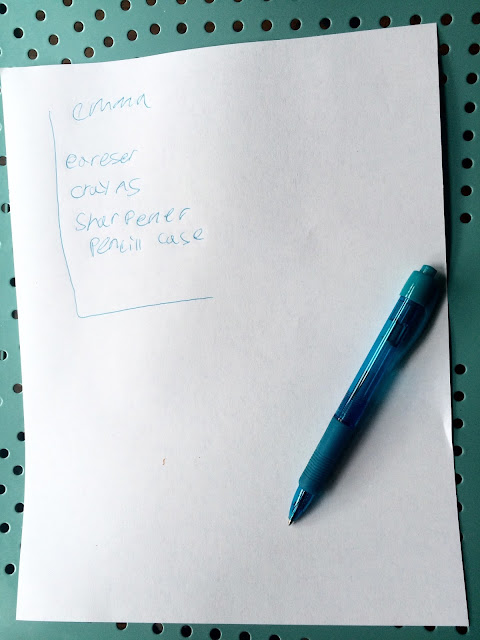 emma
eareser
crayns
sharpener
pencill case